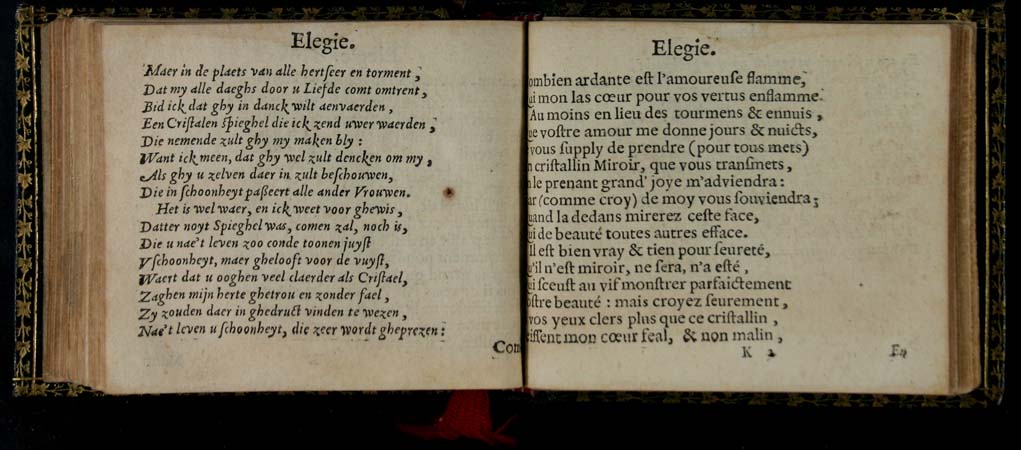 Elegie.
Maer in de plaets van alle hertseer en torment,
Dat my alle daeghs door u Liefde comt omtrent,
Bid ick dat ghy in danck wilt aenvaerden,
Een Cristalen spieghel die ick zend uwer waerden,
Die nemende zult ghy my maken bly:
Want ick meen, dat ghy wel zult dencken om my,
Als ghy u zelven daer in zult beschouwen,
Die in schoonheyt passeert alle ander Vrouwen.
Het is wel waer, en ick weet voor ghewis,
Datter noyt Spieghel was, comen zal, noch is,
Die u nae't leven zoo conde toonen juyst
V schoonheyt, maer ghelooft voor de vuyst,
Waert dat u ooghen veel claerder als Cristael,
Zaghen mijn herte ghetrou en zonder fael,
Zy zouden daer in ghedruct vinden te wezen,
Nae't leven u schoonheyt, die zeer wordt gheprezen:
Com
Elegie.
ombien ardante est l'amoureuse flamme,
ui mon las cœur pour vos vertus enflamme.
Au moins en lieu des tourmens & ennuis,
ue vostre amour me donne jours & nuicts,
vous supply de prendre (pour tous mets)
n cristallin Miroir, que vous transmets,
n le prenant grand' joye m'adviendra:
ar (comme croy) de moy vous souviendra;
uand la dedans mirerez ceste face,
ui de beauté toutes autres efface.
Il est bien vray & tien pour seureté,
u'il n'est miroir, ne sera, n'a esté,
ui sceust au vif monstrer parfaictement
ostre beauté: mais croyez seurement,
vos yeux clers plus que ce cristallin,
eissent mon cœur feal, & non malin,
K 2
En